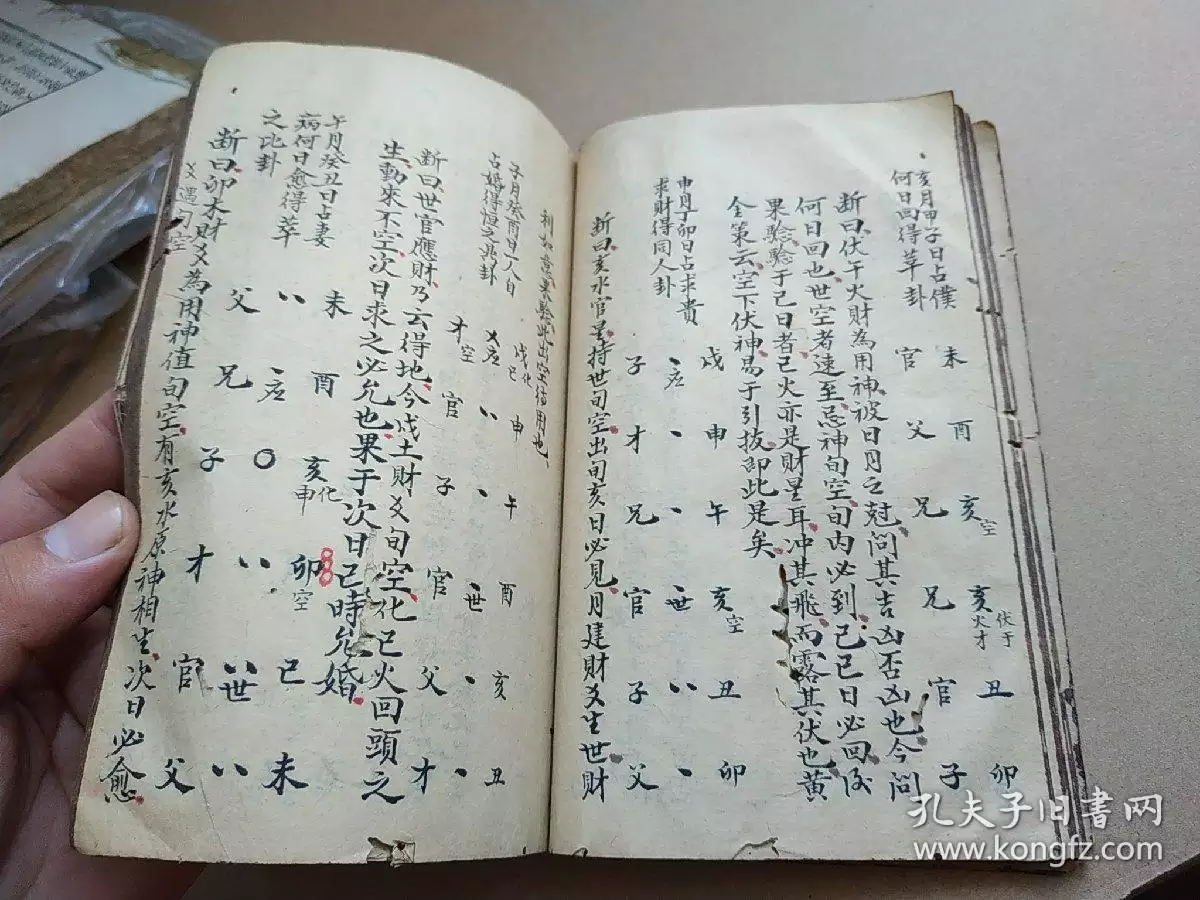 亥月甲子日占僕
何日回得革卦
未 官
酉 父
亥空 兄
亥 兄 伏午火才
丑 官
卯 子
断曰伏午火財為用神被日月之尅問其吉凶否凶也今問
何日回也世空者速至忌神旬空旬内必到己巳日必回後
果驗驗于巳日者巳火亦是財星耳冲其飛而露其伏也黄
金策云空下伏神易于引拔即此是矣
申月丁卯日占求貴
求財得同人卦
戌 、应 子
申 、 才
午 、 兄
亥空 、世 官
丑 〃 子
卯 、 父
断曰亥水官星持世旬空出旬亥日必見月建財爻生世財
利如意果驗此出空値用也
子月癸酉日一人自
占婚得恒之兆卦
戌化巳 乂应 才空
申 〃 官
午 、 子
酉 、世 官
亥 、 父
丑 、 才
断曰世官應財乃云得地今戌土財爻旬空化巳火回頭之
生動來不空次日求之必允也果于次日巳時允婚
午月癸丑日占妻
病何日愈得萃
之比卦
未 〃 父
酉 、应 兄
亥化申 〇 子
卯空 〃 才
巳 〃世 官
未 〃 父
断曰卯木財爻為用神值旬空有亥水原神相生次日必愈
爻遇旬空
孔夫子旧书网
www.kongfz.com